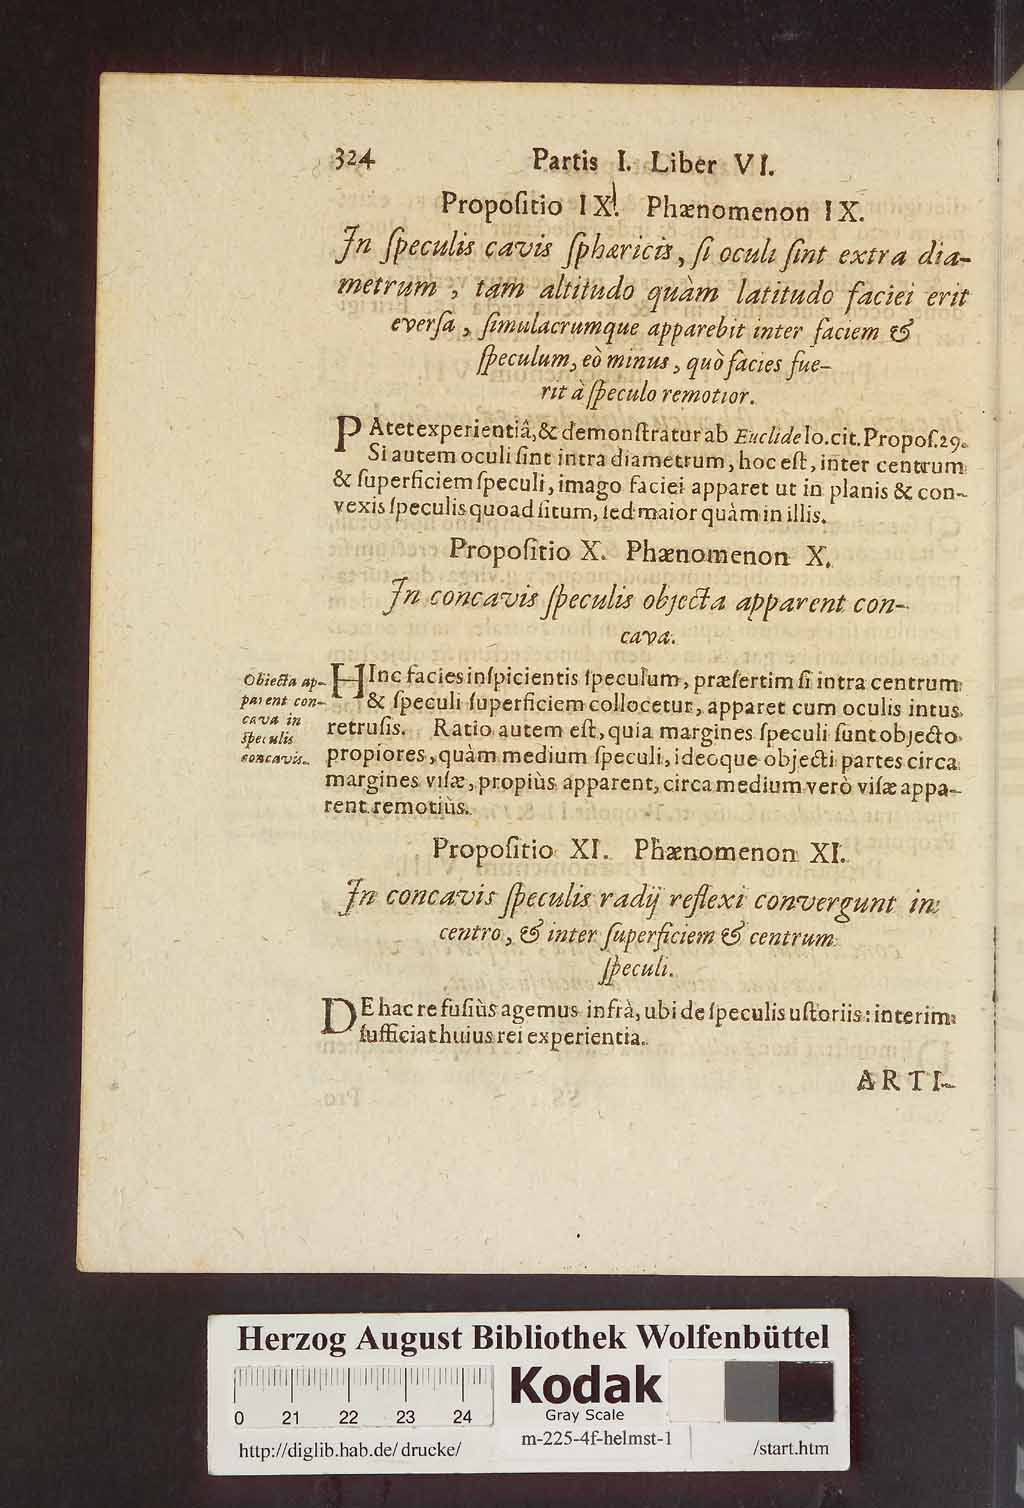 324 Partis I. Liber VI.
Propoſitio IX. Phænomenon IX.
In ſpeculis cavis ſphæricis, ſi oculi ſint extra dia-
metrum, tam altitudo quàm latitudo faciei erit
everſa, ſimulacrumque apparebit inter faciem &
ſpeculum, eò minus, quò facies fue-
rit à ſpeculo remotior.
PAtet experientiâ, & demonſtratur ab Euclide lo. cit. Propoſ. 29.
Si autem oculi ſint intra diametrum, hoc eſt, inter centrum
& ſuperficiem ſpeculi, imago faciei apparet ut in planis & con-
vexis ſpeculis quoad ſitum, ſed maior quàm in illis.
Propoſitio X. Phænomenon X.
In concavis ſpeculis objecta apparent con-
cava.
Obiecta ap-
parent con-
cava in
ſpeculis
concavis.
HInc facies inſpicientis ſpeculum, præſertim ſi intra centrum
& ſpeculi ſuperficiem collocetur, apparet cum oculis intus
retruſis. Ratio autem eſt, quia margines ſpeculi ſunt objecto
propiores, quàm medium ſpeculi, ideoque objecti partes circa
margines viſæ, propiùs apparent, circa medium verò viſæ appa-
rent remotiùs.
Propoſitio XI. Phænomenon XI.
In concavis ſpeculis radij reflexi convergunt in
centro, & inter ſuperficiem & centrum
ſpeculi.
DE hac re fuſiùs agemus infrà, ubi de ſpeculis uſtoriis: interim
ſufficiat huius rei experientia.
ARTI-
Herzog August Bibliothek Wolfenbüttel
0 21 22 23 24
Kodak
Gray Scale
http://diglib.hab.de/drucke/ m-225-4f-helmst-1 /start.htm